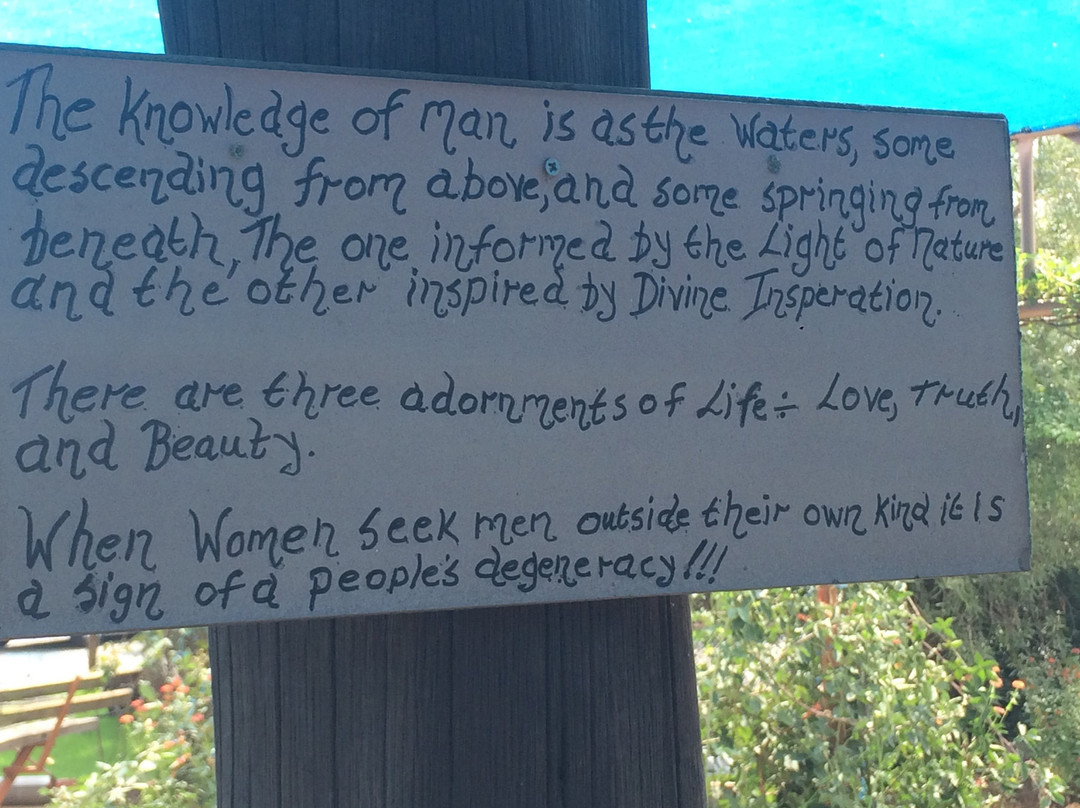 The Knowledge of Man is as the Waters, some
descending from above, and some springing from
beneath, The one informed by the Light of Nature
and the other inspired by Divine Insperation.
There are three adornments of Life÷ Love, Truth,
and Beauty.
When Women Seek men outside their own Kind it Is
a sign of a people's degeneracy!!!